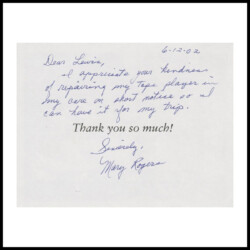 6-12-02
Dear Lewis,
I appreciate your kindness
of repairing my tape player in
my car on short notice so I
can have it for my trip.
Thank you so much!
Sincerely,
Mary Rogers